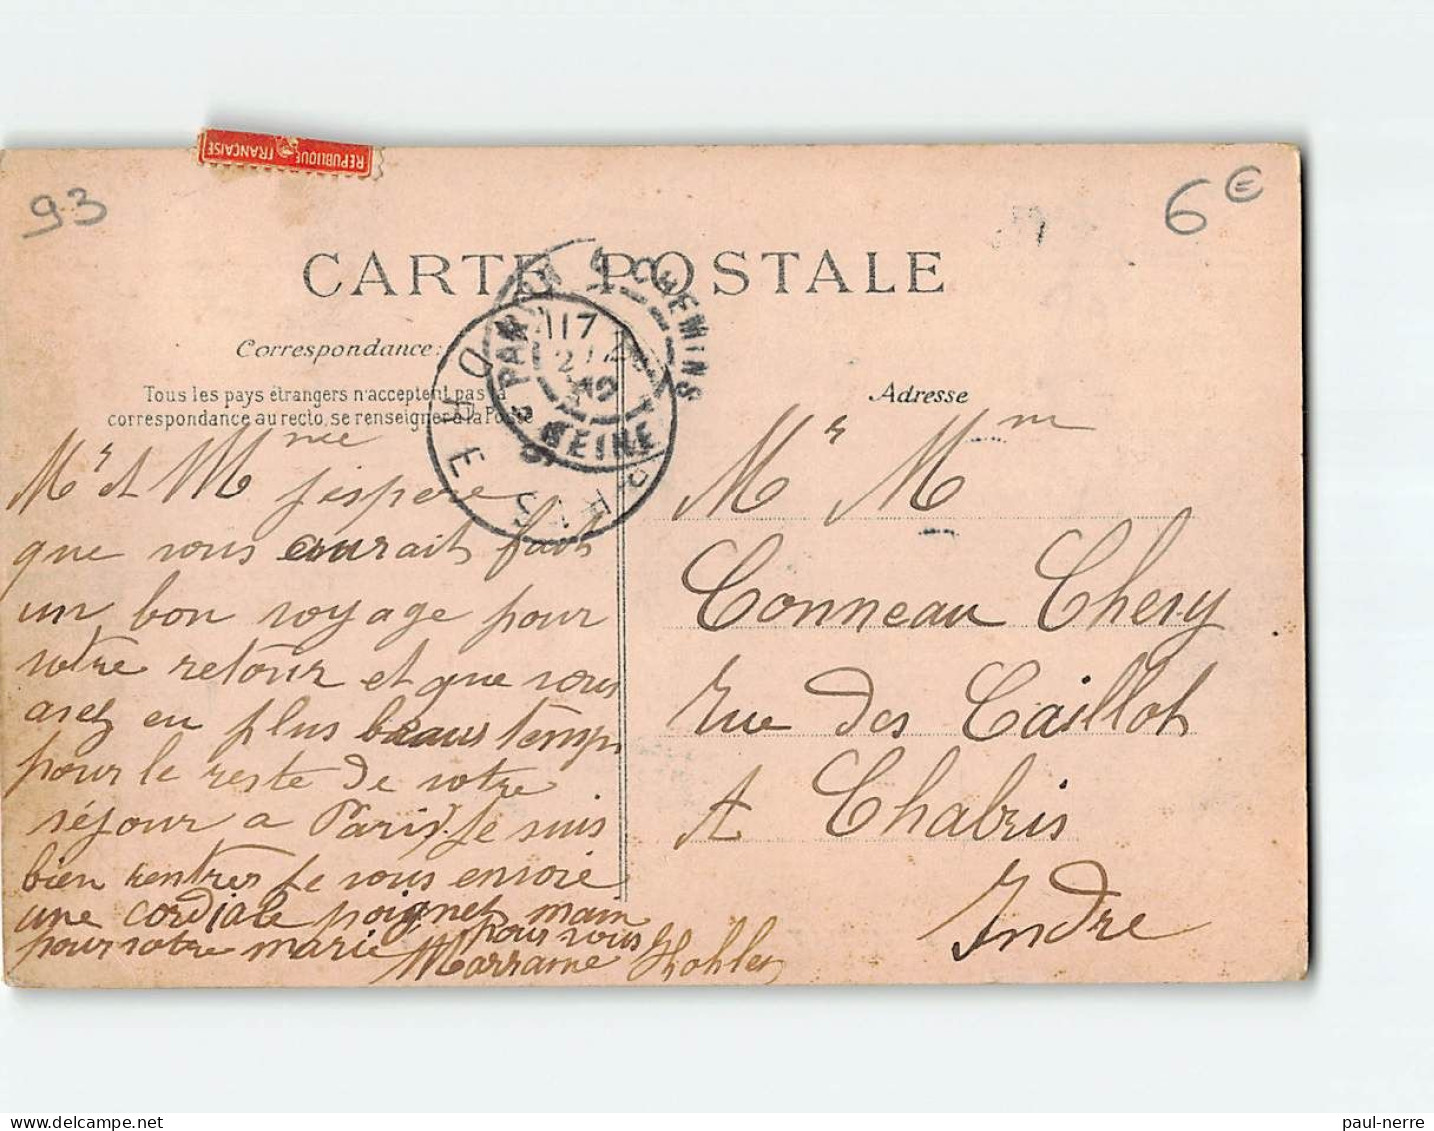 RÉPUBLIQUE FRANÇAISE
93
6€
CARTE POSTALE
Correspondance:
Tous les pays étrangers n'acceptent pas la
correspondance au recto, se renseigner à la Poste
Adresse
PANTIN 4 CHEMINS
117
12
SEINE
Mr et Mme j'espere
que vous aurait fait
un bon voyage pour
votre retour et que vous
avez eu plus beaus temps
pour le reste de votre
séjour a Paris. Je suis
bien rentres je vous envoie
une cordiale poignez main
pour votre marie pour vous
Marraine Kohler
Mr Mm
Conneau Chery
rue des Caillot
A Chabris
Indre
paul-nerre